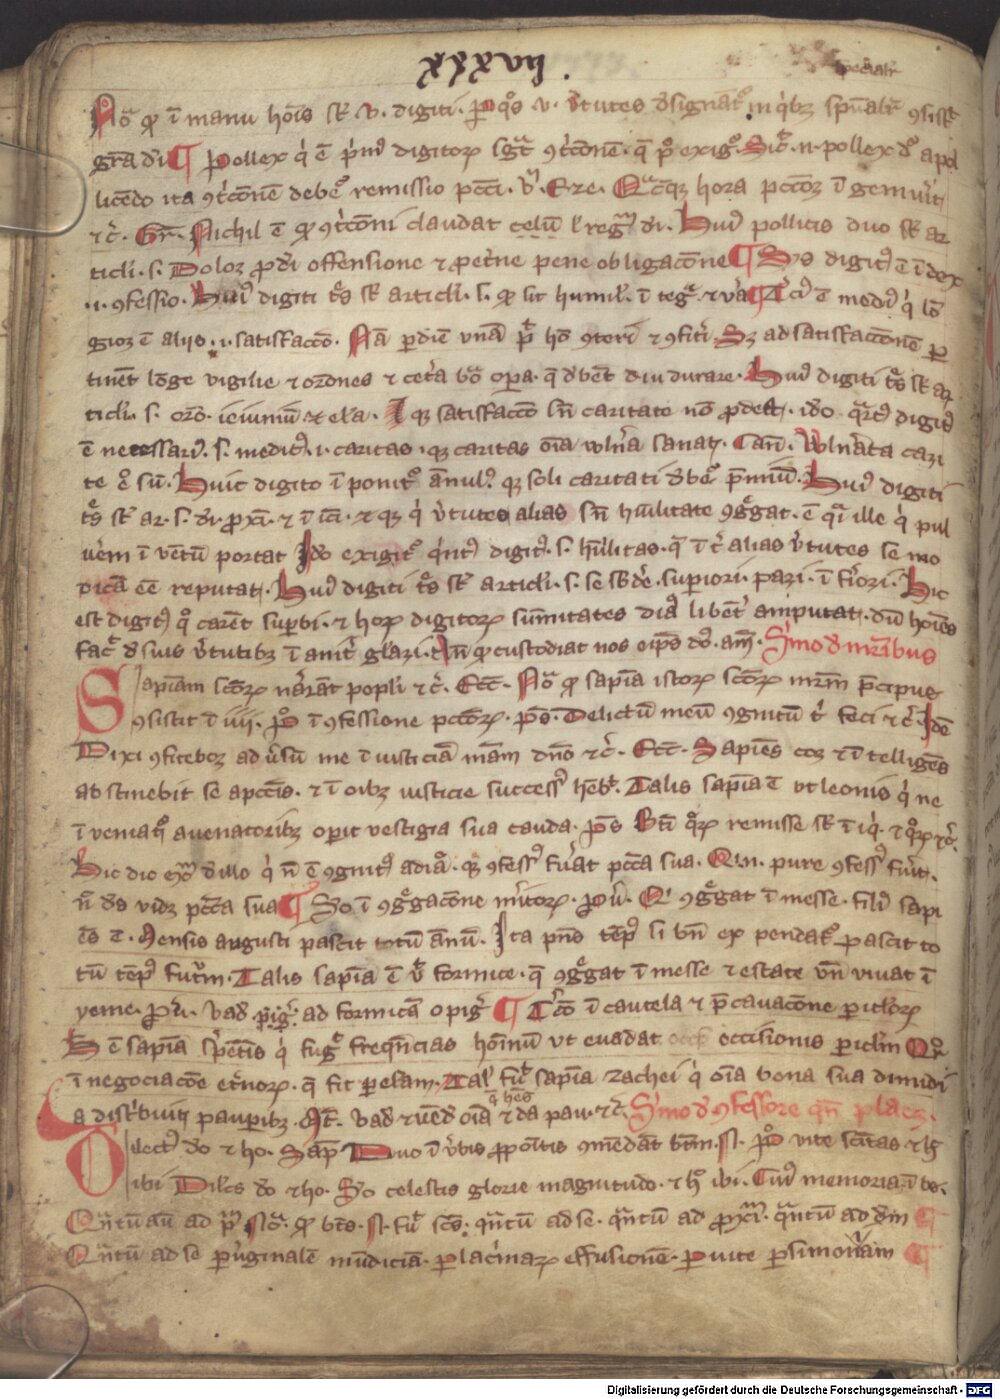 xxxvij.
specialit
No qo i manu hois st v. digiti. p quos v. vtutes designat in qibz spualit gsist
gra di ¶ Pollex qi e pim digitorz sgt gtcone. q p exigo. Sic. n. pollex do apol
licedo ita gtcone debeo remissio pcci. Un. Eze. Qcqz hora pctor i gemuit
tc. Gr. Nichil e qo gtconi claudat celu l regm di. Hui pollicis duo st ar
ticli. s. Dolor pdi offensione et petne pene obligacone ¶ Ss digit e idex
.i. gfessio. Hui digiti ts st articli. s. qo sit humil. i tegr et va ¶ Tci e medi qi lo
gior e aliis .i. satisfacco. Na p die una pt ho gteri et gfiti. Sz ad satisfaccone p
tinet loge vigilie et ordnes et ceta bo opa. q dbet diu durare. Hui digiti ts st ar
ticli. s. oro. ieiuniu et ela. I qz satisfacco sn caritate no pdest. ido qrt digit
e necessari. s. medic .i. caritas. qz caritas oia wlna sanat. Can. Wlnata cari
te e su. Huic digito i ponit anul. qz soli caritati dbeo pmiu. Hui digiti
ts st ar. s. di. pxi. et i ici. et qz qi vtutes alias sn huilitate gggat. e qi ille qi pul
uem i ventu portat Ido exigit qint digit. s. huilitas. q i tc alias vtutes se mo
dica ee reputat. Hui digiti ts st articli. s. se sbde. supiori. pari. i fiori. Hic
est digit qo caret supbi. et horz digitorz sumitates dia libent amputat. du hoies
fac d suis vtutibz i anit glari. An qo custodiat nos eips do. am. Smo d mribus
Sapiam scorz narrat popli et c. Ecc. No qo sapia istorz scorz mrm pcipue
gsistit i iiij. po i gfessione pctorz. ps. Delictu meu gnitu t feci et c. Ide
Dixi gfitebor adusu me i iusticia mea dno et c. Ecc. Sapies cor et i telliges
abstinebit se apccis. et i oibz iusticie success heb. Talis sapia e ut leonis qi ne
i veniat avenatoribz opit vestigia sua cauda. ps Bti qrz remisse st i iq. et qrz et c.
Hic dic exm dillo qi n e gnit adia. qz gfess fuat pcca sua. Qn. pure gfess fuit.
n ds vidz pcca sua ¶ So i gggacone mitorz. pu. Qi gggat i messe. fili sapi
es e. Mensis augusti pascit totu annu. Ita pns temp si bn ex pendat pascit to
tu temp futm. Talis sapia e u formice. q gggat i messe et estate un vivat i
yeme. pu. vad pigr ad formica o pigr ¶ Tco i cautela et pcavacone piclorz
Hec e sapia spetis qi fugt freqncias hoinu ut evadat occisionis piclm Qr
i negociacoe etnorz. q fit p elam. Tal fuit sapia zachei qi oia bona sua dimidi
a distbuit paupibz. Mt. vad et ued oia q hes et da pau. et c. Smo d gfessore qn placz.
Dilect do et ho. Sap Duo i ubis ppoitis gmedat btm. N. po vite scitas et h
ibi Dilcs do et ho. So celestis glorie magnitudo. et ho ibi. Cui memoria i be.
Qntu au ad pm sca. qo bts. N. fuit scs. qntu ad se. qntu ad pxim. qntu ad dm ¶
Qntu ad se p uginale mudicia. p lacimarz effusione. p vite psimoniam ¶
Digitalisierung gefördert durch die Deutsche Forschungsgemeinschaft - DFG